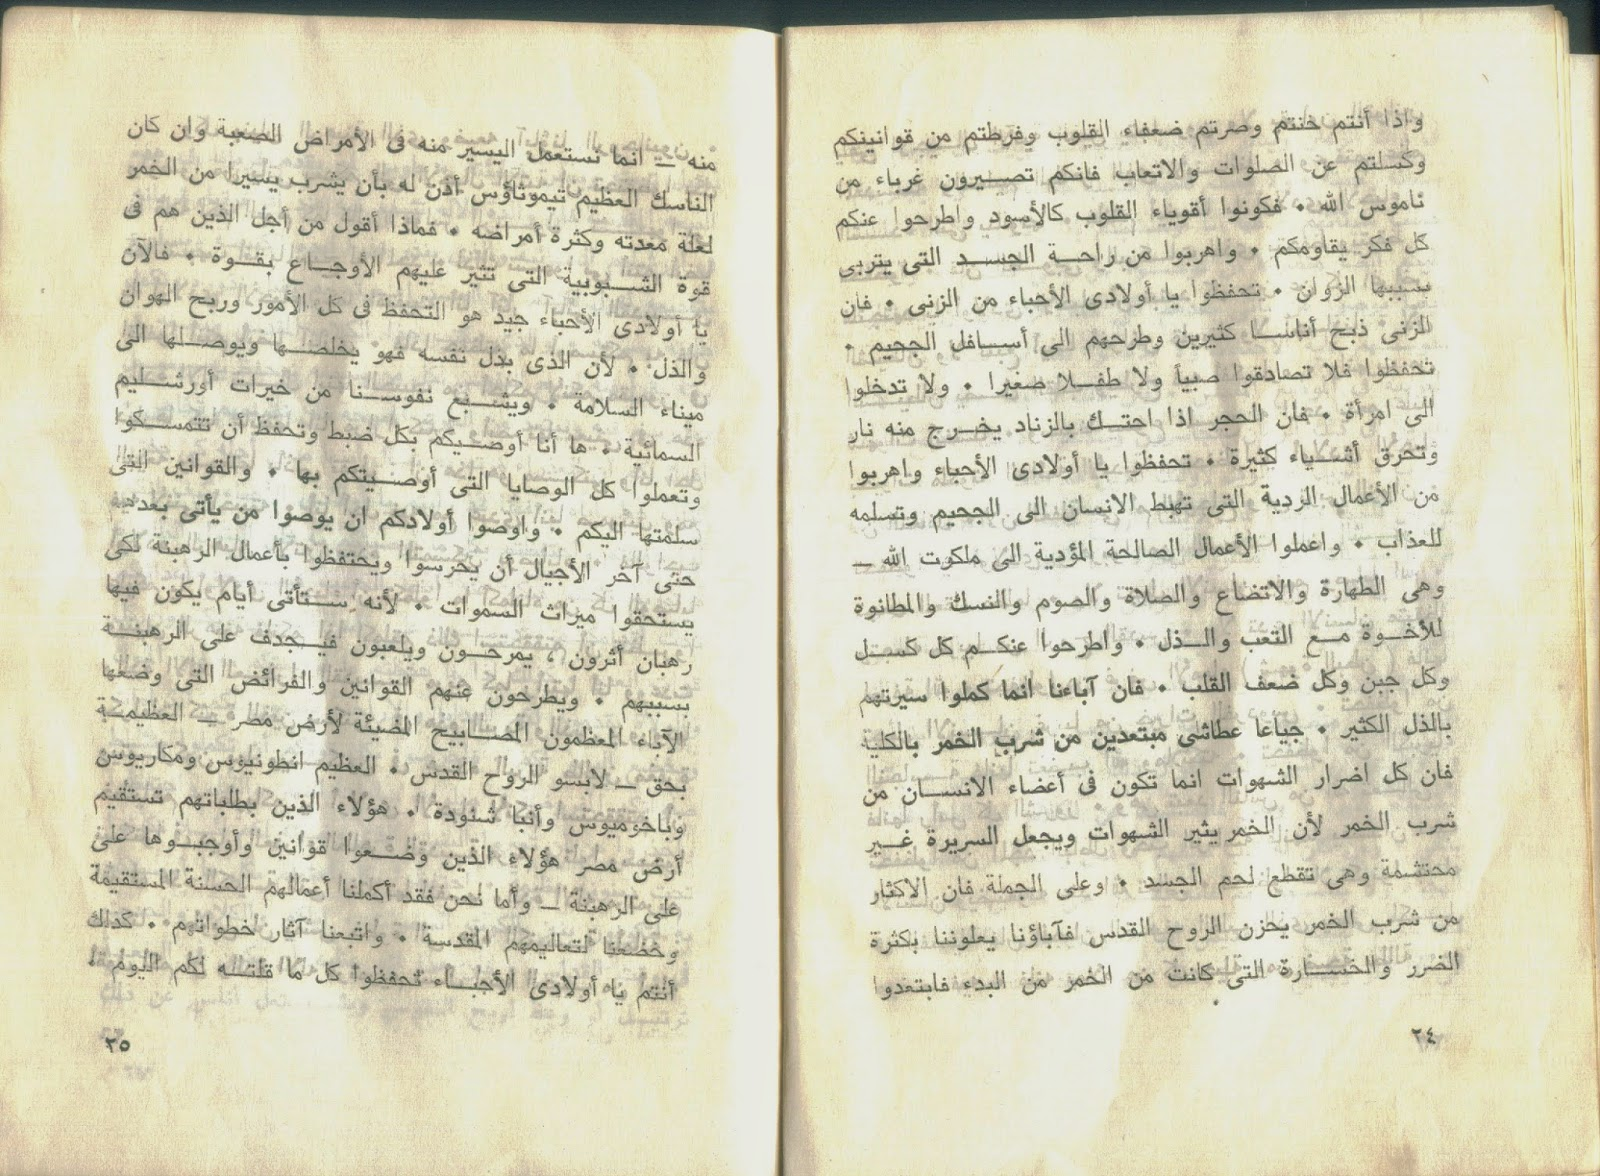 واذا أنتم خنتم وصرتم ضعفاء القلوب وفرطتم من قوانينكم
وكسلتم عن الصلوات والاتعاب فانكم تصيرون غرباء من
ناموس الله • فكونوا أقوياء القلوب كالأسود واطرحوا عنكم
كل فكر يقاومكم • واهربوا من راحة الجسد التى يتربى
بسببها الزوان • تحفظوا يا أولادى الأحباء من الزنى • فان
الزنى ذبح أناسا كثيرين وطرحهم الى أسافل الجحيم •
تحفظوا فلا تصادقوا صبياً ولا طفلا صغيرا • ولا تدخلوا
الى امرأة • فان الحجر اذا احتك بالزناد يخرج منه نار
وتحرق أشياء كثيرة • تحفظوا يا أولادى الأحباء واهربوا
من الأعمال الردية التى تهبط الانسان الى الجحيم وتسلمه
للعذاب • واعملوا الأعمال الصالحة المؤدية الى ملكوت الله —
وهى الطهارة والاتضاع والصلاة والصوم والنسك والمطانوة
للأخوة مع التعب والذل • واطرحوا عنكم كل كسل
وكل جبن وكل ضعف القلب • فان آباءنا انما كملوا سيرتهم
بالذل الكثير • جياعا عطاشى مبتعدين من شرب الخمر بالكلية
فان كل اضرار الشهوات انما تكون فى أعضاء الانسان من
شرب الخمر لأن الخمر يثير الشهوات ويجعل السريرة غير
محتشمة وهى تقطع لحم الجسد • وعلى الجملة فان الاكثار
من شرب الخمر يحزن الروح القدس فآباؤنا يعلوننا بكثرة
الضرر والخسارة التى كانت من الخمر من البدء فابتعدوا
٢٤
منه — انما تستعمل اليسير منه فى الأمراض الصعبة وان كان
الناسك العظيم تيموثاؤس أذن له بأن يشرب يسيرا من الخمر
لعلة معدته وكثرة أمراضه • فماذا أقول من أجل الذين هم فى
قوة الشبوبية التى تثير عليهم الأوجاع بقوة • فالآن
يا أولادى الأحباء جيد هو التحفظ فى كل الأمور وربح الهوان
والذل • لأن الذى بذل نفسه فهو يخلصها ويوصلها الى
ميناء السلامة • ويشبع نفوسنا من خيرات أورشليم
السمائية • ها أنا أوصيكم بكل ضبط وتحفظ أن تتمسكوا
وتعملوا كل الوصايا التى أوصيتكم بها • والقوانين التى
سلمتها اليكم • واوصوا أولادكم ان يوصوا من يأتى بعدهم
حتى آخر الأجيال أن يحرسوا ويحتفظوا بأعمال الرهبنة لكى
يستحقوا ميراث السموات • لأنه ستأتى أيام يكون فيها
رهبان أثرون ، يمرحون ويلعبون فيجدف على الرهبنة
بسببهم • ويطرحون عنهم القوانين والفرائض التى وضعها
الآباء المعظمون المصابيح المضيئة لأرض مصر — العظيمة
بحق — لابسو الروح القدس • العظيم انطونيوس ومكاريوس
وباخوميوس وأنبا شنودة • هؤلاء الذين بطلباتهم تستقيم
أرض مصر هؤلاء الذين وضعوا قوانين وأوجبوها على
على الرهبنة — وأما نحن فقد أكملنا أعمالهم الحسنة المستقيمة
وخضعنا لتعاليمهم المقدسة • واتبعنا آثار خطواتهم • كذلك
أنتم يا أولادى الأحباء تحفظوا كل ما قلته لكم اليوم •
٢٥